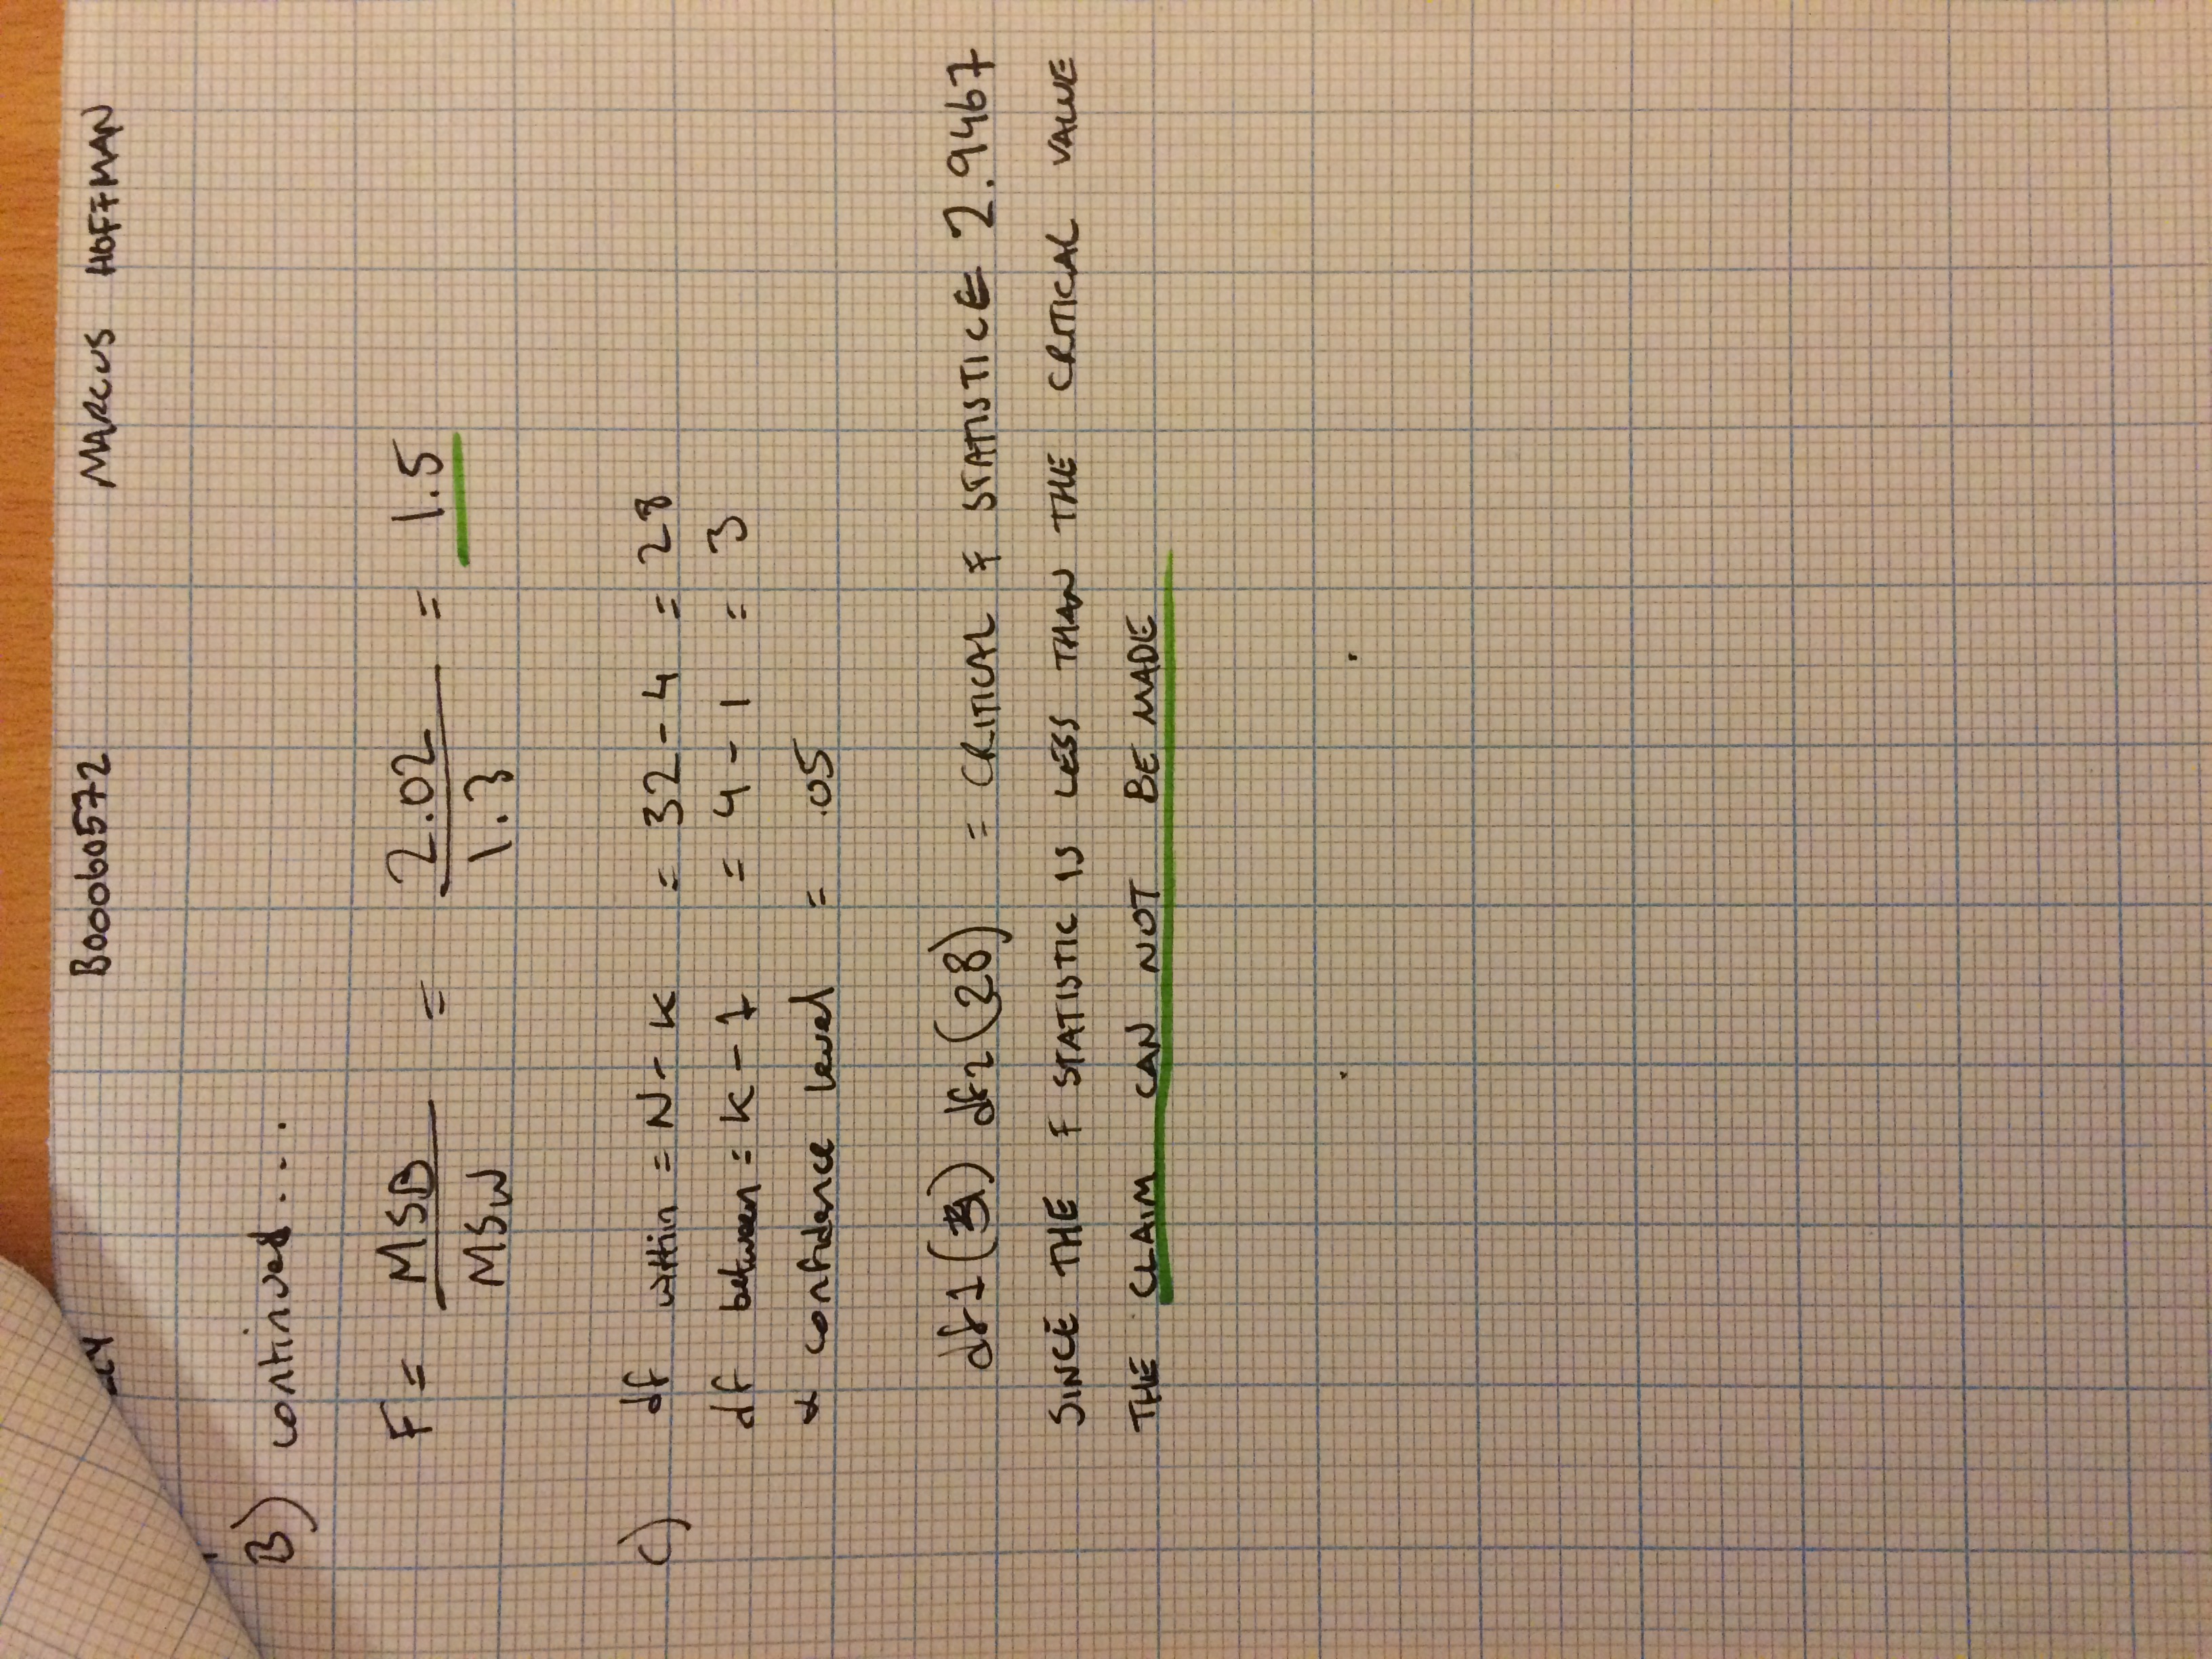 B00060572 MARCUS HOFFMAN
B) continued....
F = MSB / MSW = 2.02 / 1.3 = 1.5
C) df within = N - K = 32 - 4 = 28
df between = K - 1 = 4 - 1 = 3
α confidence level = .05
df1(3) df2(28) = CRITICAL F STATISTIC = 2.9467
SINCE THE F STATISTIC IS LESS THAN THE CRITICAL VALUE
THE CLAIM CAN NOT BE MADE